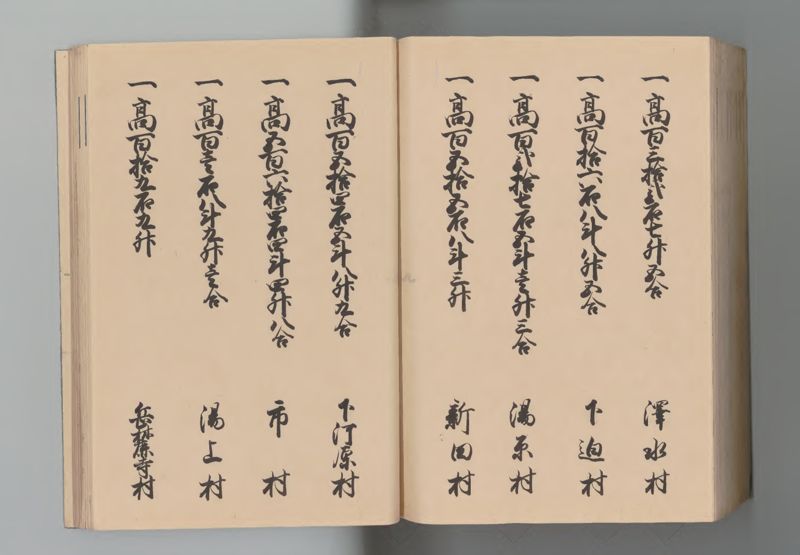 一高百三拾弐石七升五合 澤水村
一高百拾六石八斗八升五合 下迫村
一高百弐拾七石五斗壱升三合 湯原村
一高百五拾五石八斗三升 新田村
一高百五拾四石五斗八升九合 下河原村
一高五百六拾四石四斗四升八合 市村
一高百壱石八斗九升壱合 湯上村
一高百拾九石九升 岳麓寺村